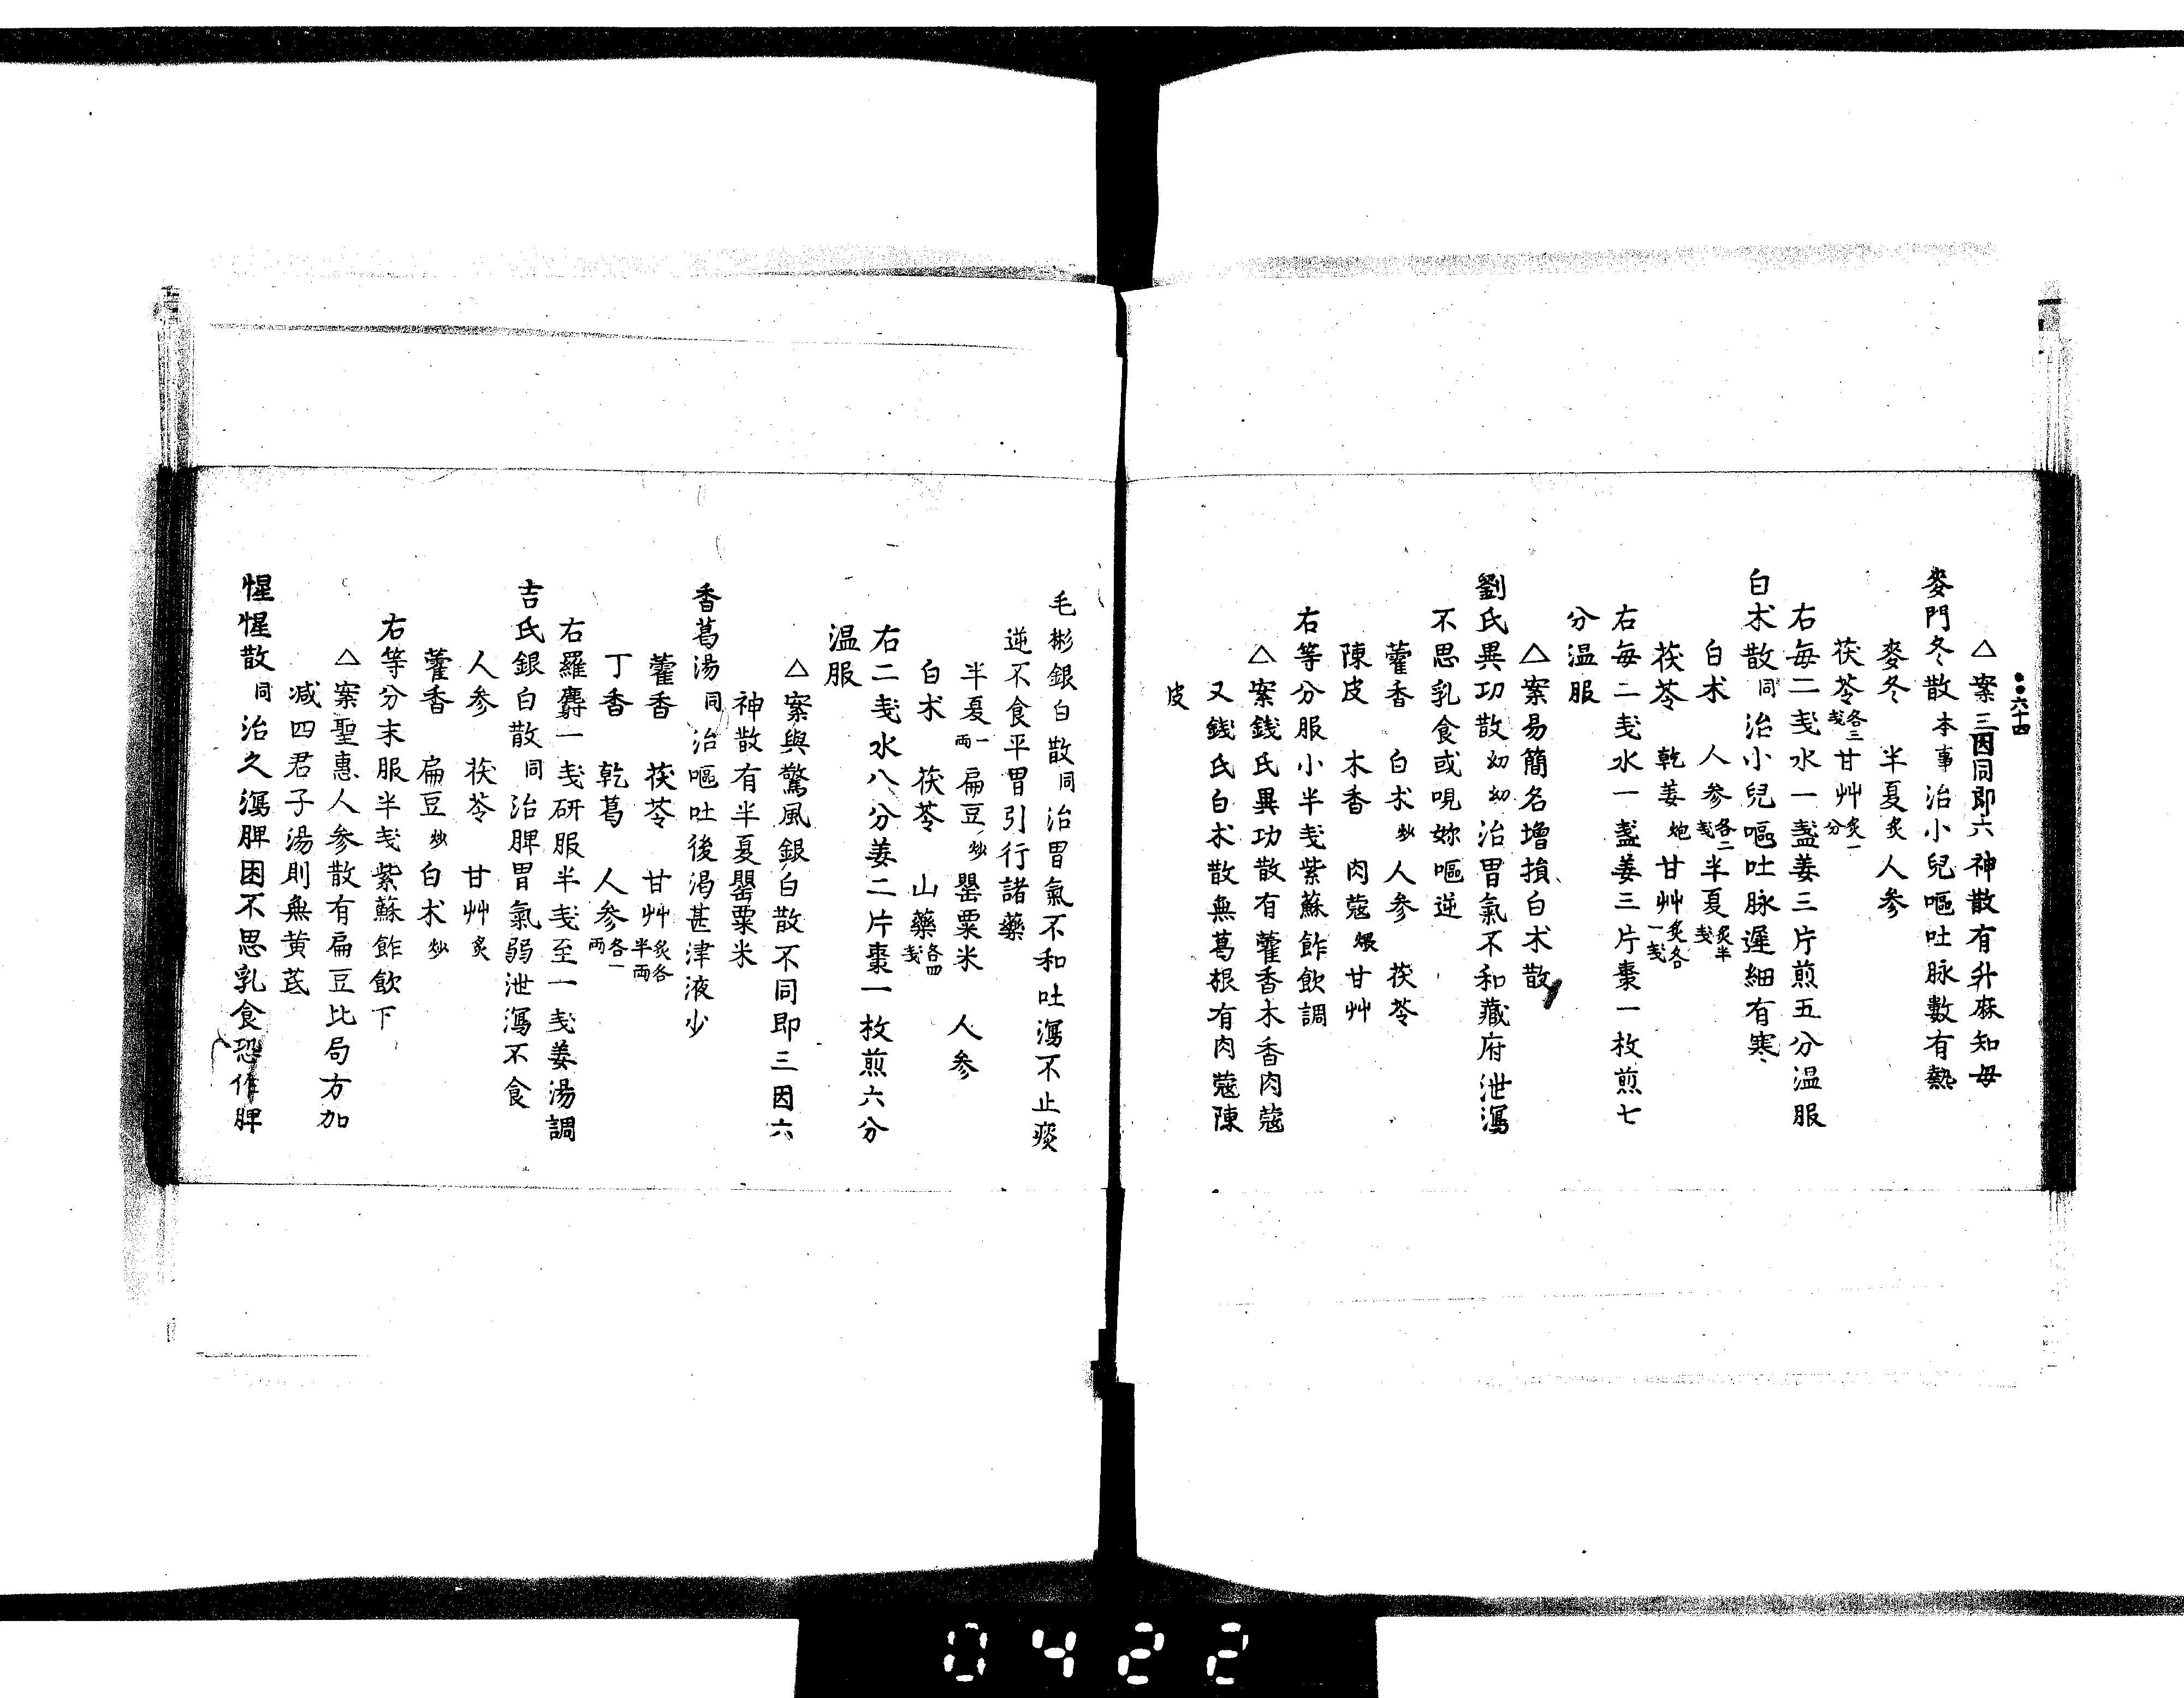 六十四
△案三因同即六神散有升麻知毋
麥門冬散本事治小兒嘔吐脉數有熱
麥冬 半夏炙人参
茯苓各三戔甘艸炙一分
右每二戔水一盞姜三片煎五分温服
白朮散同治小兒嘔吐脉遲細有寒
白朮 人参各二戔半夏炙半戔
茯苓 乾姜炮甘艸炙各一戔
右每二戔水一盞姜三片棗一枚煎七
分温服
△案易簡名増損白朮散
劉氏異功散幼幼治胃氣不和藏府泄瀉
不思乳食或哯妳嘔逆
藿香 白朮炒人参 茯苓
陳皮 木香 肉蔻煨甘艸
右等分服小半戔紫蘇飵飲調
△案銭氏異功散有藿香木香肉蔻
又銭氏白朮散無葛根有肉蔻陳
皮
毛彬銀白散同治胃氣不和吐瀉不止痰
逆不食平胃引行諸藥
半夏一両扁豆炒罌粟米 人参
白朮 茯苓 山藥各四戔
右二戔水八分姜二片棗一枚煎六分
温服
△案與驚風銀白散不同即三因六
神散有半夏罌粟米
香葛湯同治嘔吐後渇甚津液少
藿香 茯苓 甘艸炙各半両
丁香 乾葛 人参各一両
右羅麝一戔研服半戔至一戔姜湯調
吉氏銀白散同治脾胃氣弱泄瀉不食
人参 茯苓 甘艸炙
藿香 扁豆炒白朮炒
右等分末服半戔紫蘇飵飲下
△案聖惠人参散有扁豆比局方加
减四君子湯則無黄芪
惺惺散同治久瀉脾困不思乳食恐作脾
0422